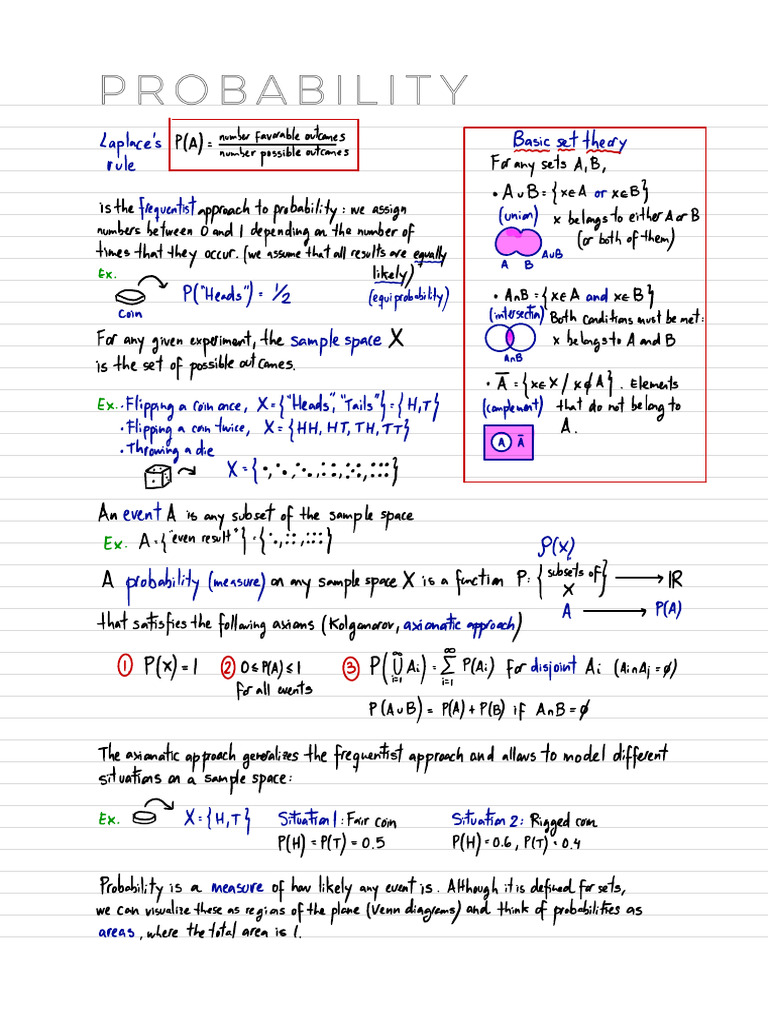 PROBABILITY
Laplace's
rule
P(A) = number favorable outcomes / number possible outcomes
is the frequentist approach to probability: we assign
numbers between 0 and 1 depending on the number of
times that they occur. (we assume that all results are equally
likely)
(equiprobability)
Ex.
Coin
P("Heads") = 1/2
For any given experiment, the sample space X
is the set of possible outcomes.
Ex. · Flipping a coin once, X = {"Heads", "Tails"} = {H,T}
· Flipping a coin twice, X = {HH, HT, TH, TT}
· Throwing a die
X = {⚀,⚁,⚂,⚃,⚄,⚅}
Basic set theory
For any sets A, B,
• A∪B = {x∈A or x∈B}
(union) x belongs to either A or B
(or both of them)
A B A∪B
• A∩B = {x∈A and x∈B}
(intersection) Both conditions must be met:
x belongs to A and B
A∩B
• A̅ = {x∈X / x∉A}. Elements
(complement) that do not belong to
A.
A A̅
An event A is any subset of the sample space
Ex. A = {"even result"} = {⚁,⚃,⚅}
𝒫(X)
A probability (measure) on any sample space X is a function P: {subsets of X} ⟶ ℝ
A ⟶ P(A)
that satisfies the following axioms (Kolgomorov, axiomatic approach)
① P(X) = 1
② 0 ≤ P(A) ≤ 1
for all events
③ P(⋃_{i=1}^∞ Ai) = ∑_{i=1}^∞ P(Ai) for disjoint Ai (Ai∩Aj = ∅)
P(A∪B) = P(A) + P(B) if A∩B = ∅
The axiomatic approach generalizes the frequentist approach and allows to model different
situations on a sample space:
Ex. X = {H,T} Situation 1: Fair coin Situation 2: Rigged coin
P(H) = P(T) = 0.5 P(H) = 0.6, P(T) = 0.4
Probability is a measure of how likely any event is. Although it is defined for sets,
we can visualize these as regions of the plane (Venn diagrams) and think of probabilities as
areas, where the total area is 1.